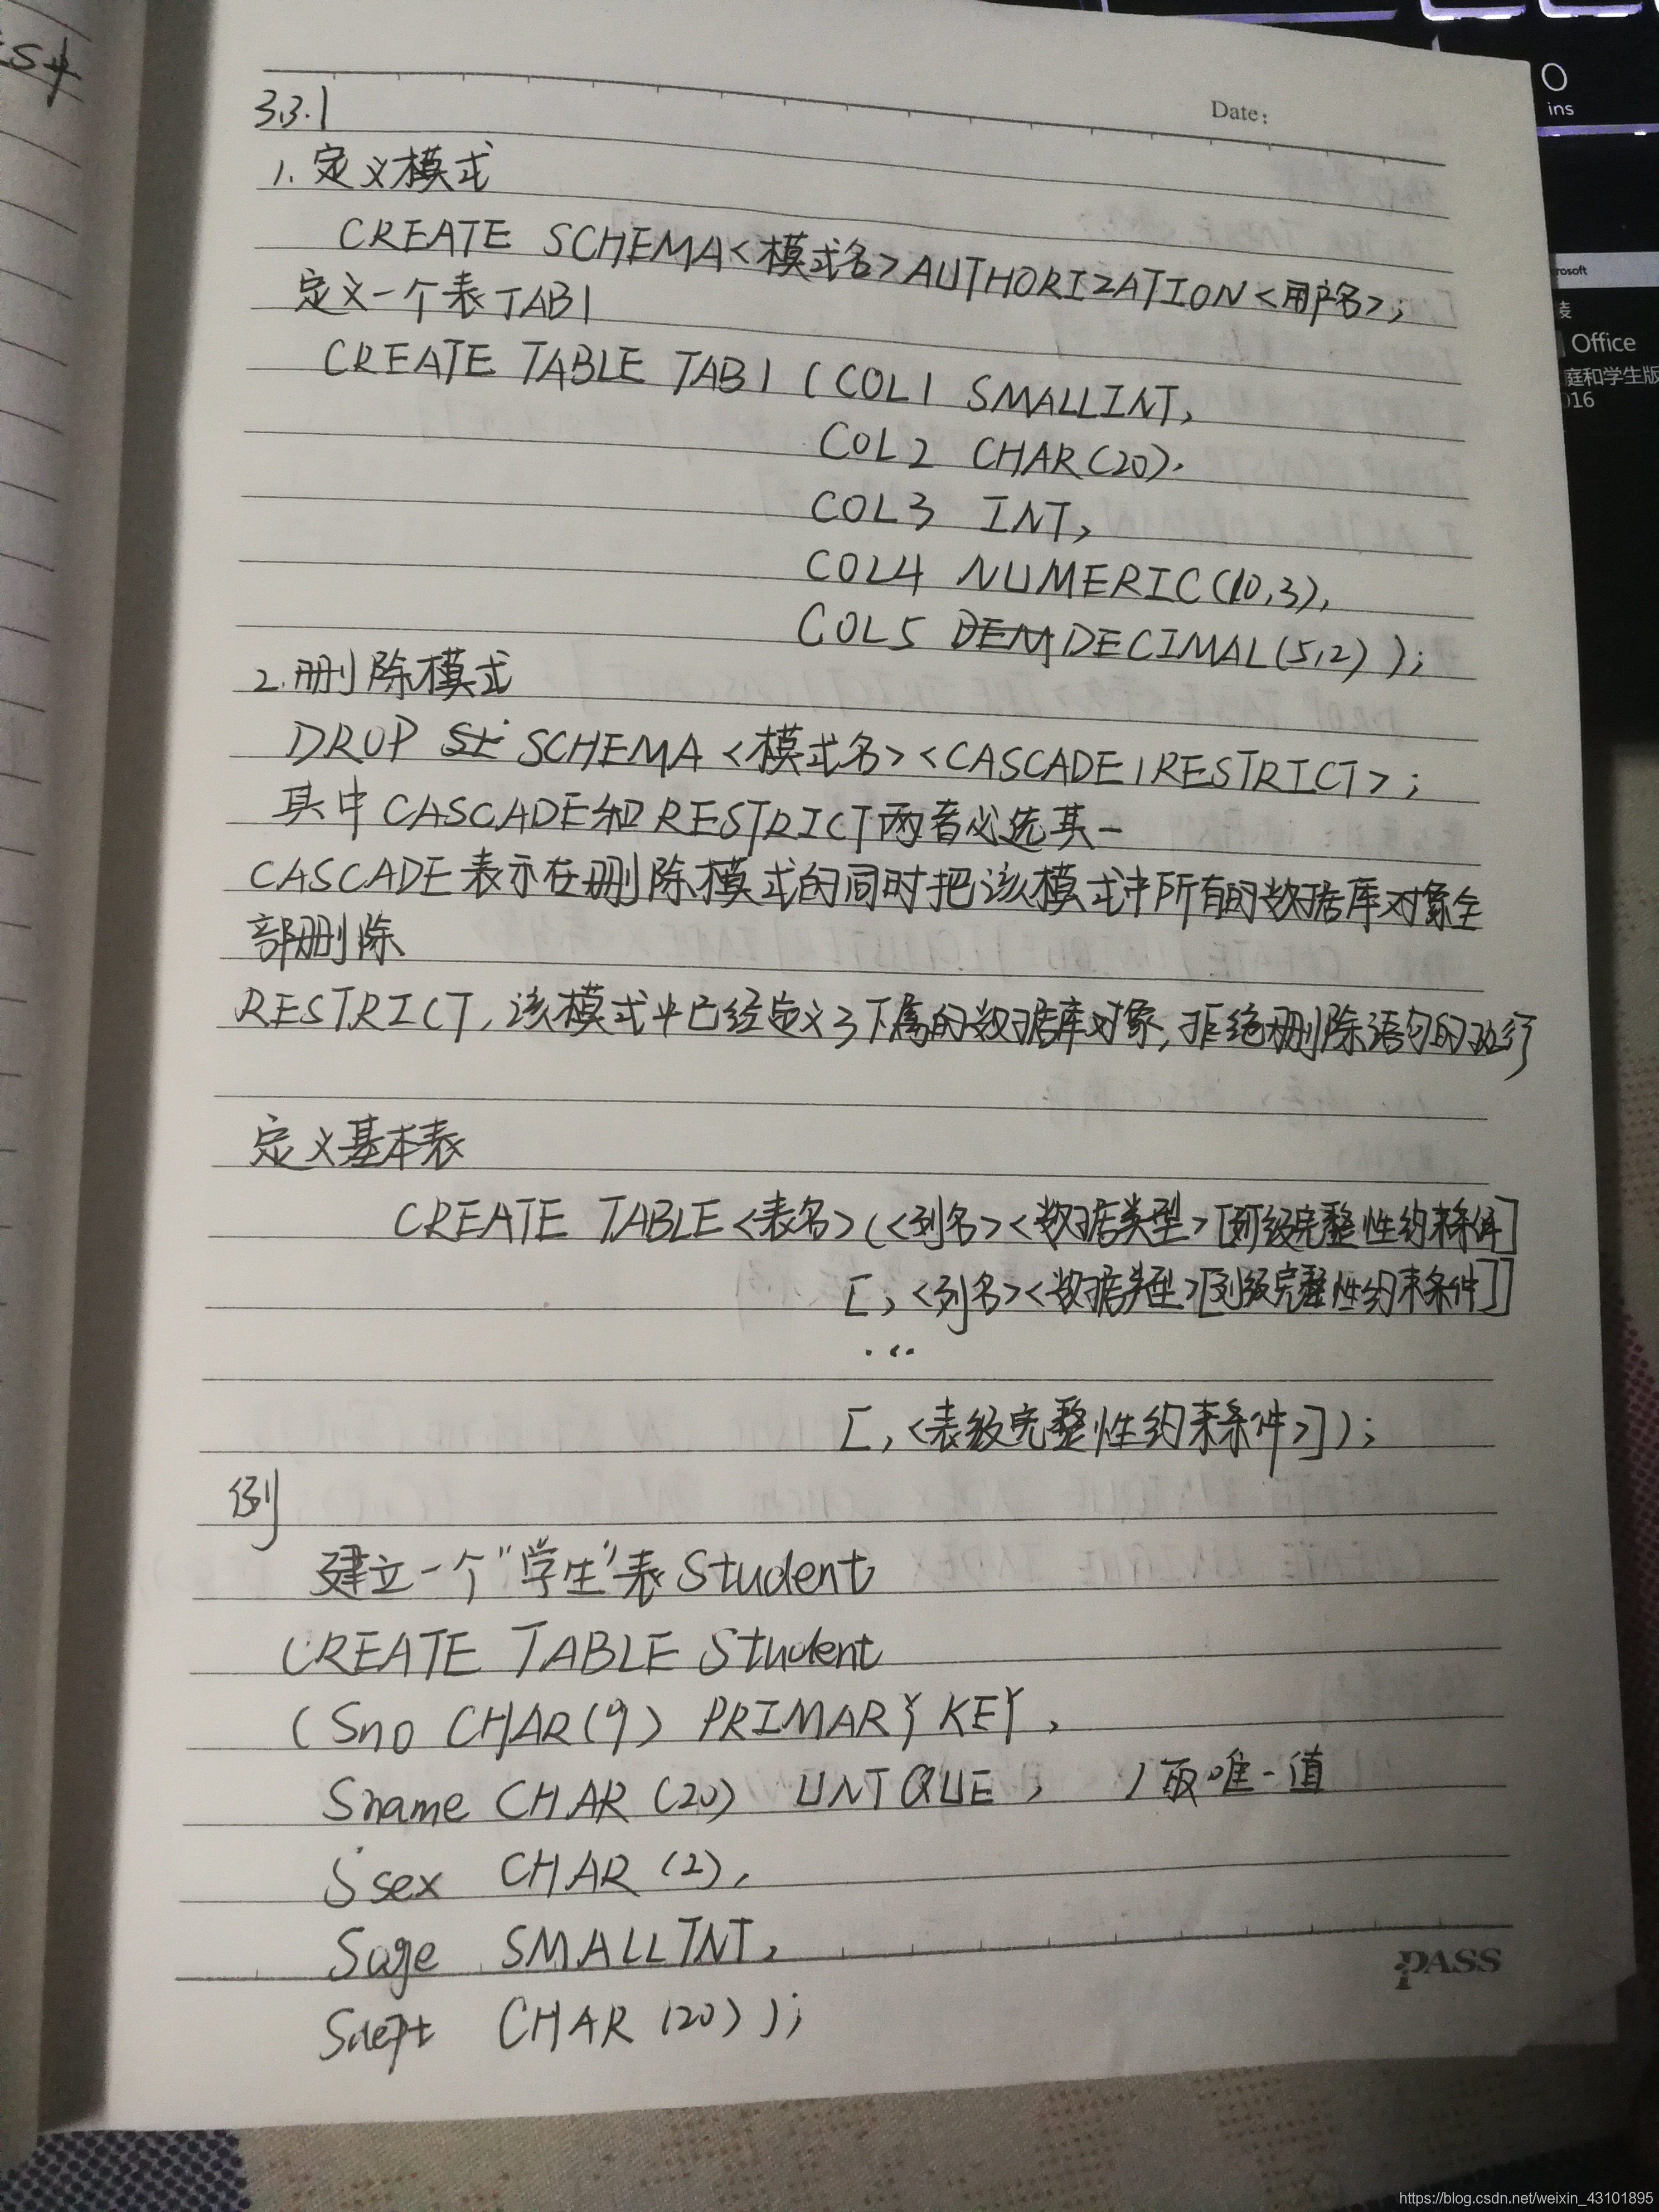 3.3.1
Date:
1. 定义模式
CREATE SCHEMA<模式名>AUTHORIZATION<用户名>;
定义一个表TAB1
CREATE TABLE TAB1 (COL1 SMALLINT,
COL2 CHAR(20).
COL3 INT,
COL4 NUMERIC(10,3),
COL5 DECIMAL(5,2));
2.删除模式
DROP SCHEMA <模式名><CASCADE|RESTRICT>;
其中CASCADE和RESTRICT两者必选其一
CASCADE表示在删除模式的同时把该模式中所有的数据库对象全
部删除
RESTRICT,该模式中已经定义了下属的数据库对象,拒绝删除语句的执行
定义基本表
CREATE TABLE<表名>(<列名><数据类型>[列级完整性约束条件]
[,<列名><数据类型>[列级完整性约束条件]]
...
[,<表级完整性约束条件>]);
例
建立一个"学生"表Student
CREATE TABLE Student
(Sno CHAR(9) PRIMARY KEY,
Sname CHAR(20) UNIQUE, /取唯一值
Ssex CHAR(2),
Sage SMALLINT,
Sdept CHAR(20));
PASS
O
ins
rosoft
装
Office
庭和学生版
016
https://blog.csdn.net/weixin_43101895